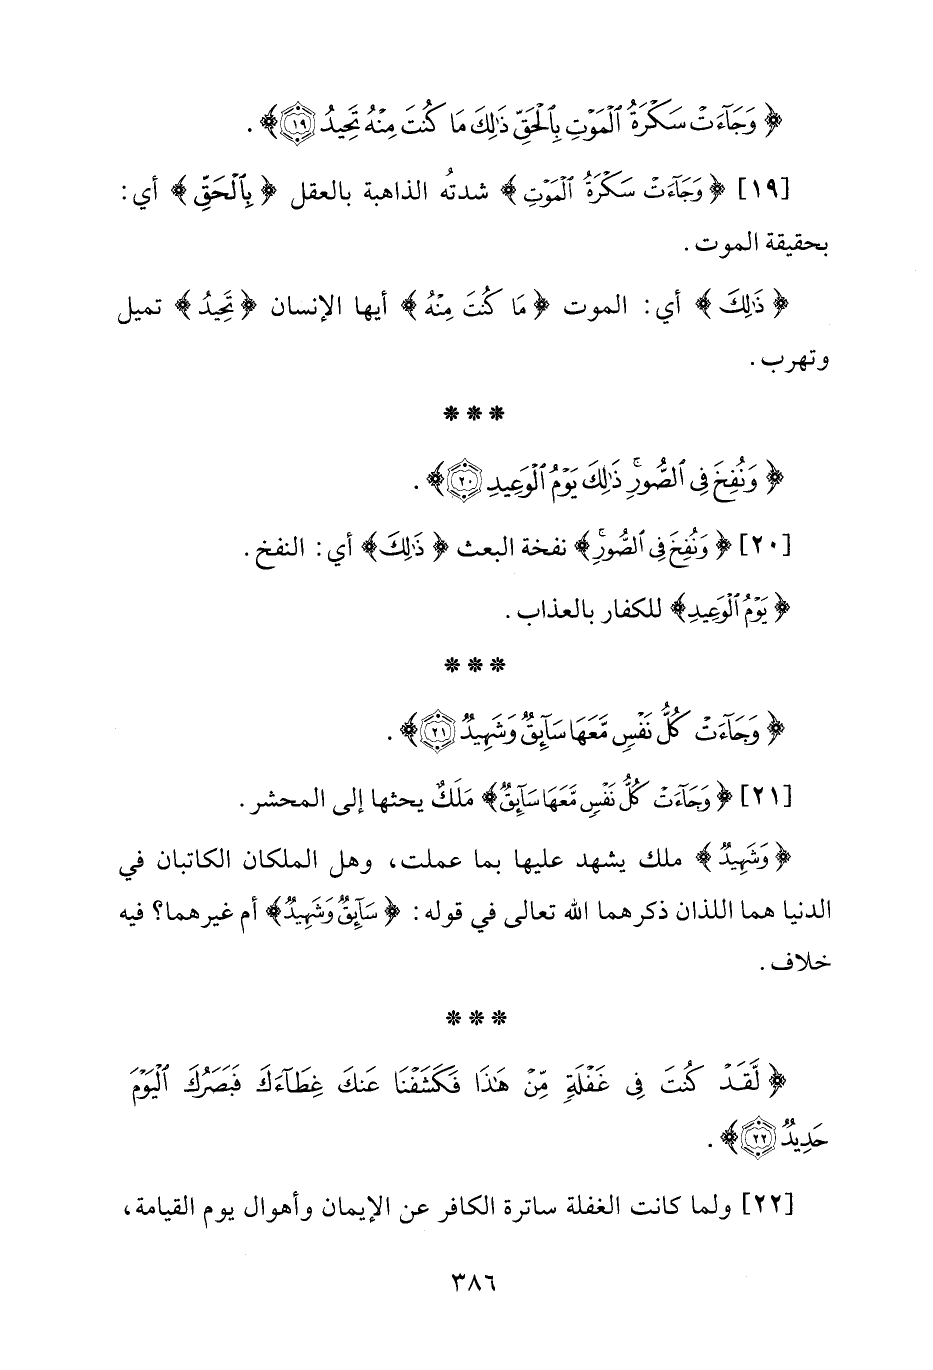 ﴿ وَجَآءَتْ سَكْرَةُ ٱلْمَوْتِ بِٱلْحَقِّ ذَٰلِكَ مَا كُنتَ مِنْهُ تَحِيدُ ١٩ ﴾ .
[١٩] ﴿ وَجَآءَتْ سَكْرَةُ ٱلْمَوْتِ ﴾ شدتُه الذاهبة بالعقل ﴿ بِٱلْحَقِّ ﴾ أي :
بحقيقة الموت .
﴿ ذَٰلِكَ ﴾ أي : الموت ﴿ مَا كُنتَ مِنْهُ ﴾ أيها الإنسان ﴿ تَحِيدُ ﴾ تميل
وتهرب .
* * *
﴿ وَنُفِخَ فِى ٱلصُّورِ ۚ ذَٰلِكَ يَوْمُ ٱلْوَعِيدِ ٢٠ ﴾ .
[٢٠] ﴿ وَنُفِخَ فِى ٱلصُّورِ ۚ ﴾ نفخة البعث ﴿ ذَٰلِكَ ﴾ أي : النفخ .
﴿ يَوْمُ ٱلْوَعِيدِ ﴾ للكفار بالعذاب .
* * *
﴿ وَجَآءَتْ كُلُّ نَفْسٍ مَّعَهَا سَآئِقٌ وَشَهِيدٌ ٢١ ﴾ .
[٢١] ﴿ وَجَآءَتْ كُلُّ نَفْسٍ مَّعَهَا سَآئِقٌ ﴾ مَلَكٌ يحثها إلى المحشر .
﴿ وَشَهِيدٌ ﴾ ملك يشهد عليها بما عملت، وهل الملكان الكاتبان في
الدنيا هما اللذان ذكرهما الله تعالى في قوله : ﴿ سَآئِقٌ وَشَهِيدٌ ﴾ أم غيرهما؟ فيه
خلاف .
* * *
﴿ لَّقَدْ كُنتَ فِى غَفْلَةٍ مِّنْ هَٰذَا فَكَشَفْنَا عَنكَ غِطَآءَكَ فَبَصَرُكَ ٱلْيَوْمَ
حَدِيدٌ ٢٢ ﴾ .
[٢٢] ولما كانت الغفلة ساترة الكافر عن الإيمان وأهوال يوم القيامة،
٣٨٦